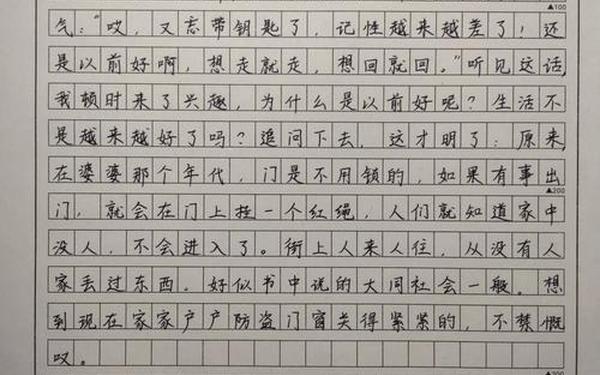 ▲100
气："哎，又忘带钥匙了，记性越来越差了！还
是以前好啊，想走就走，想回就回。"听见这话，
我顿时来了兴趣，为什么是以前好呢？生活不
是越来越好了吗？追问下去，这才明了：原来，
在婆婆那个年代，门是不用锁的，如果有事出
▲200
门，就会在门上拴一个红绳，人们就知道家中
没人，不会进入了。街上人来人住，从没有人
家丢过东西。好似书中说的大同社会一般。想
到现在家家户户防盗门窗关得紧紧的，不禁慨
叹。
▲300